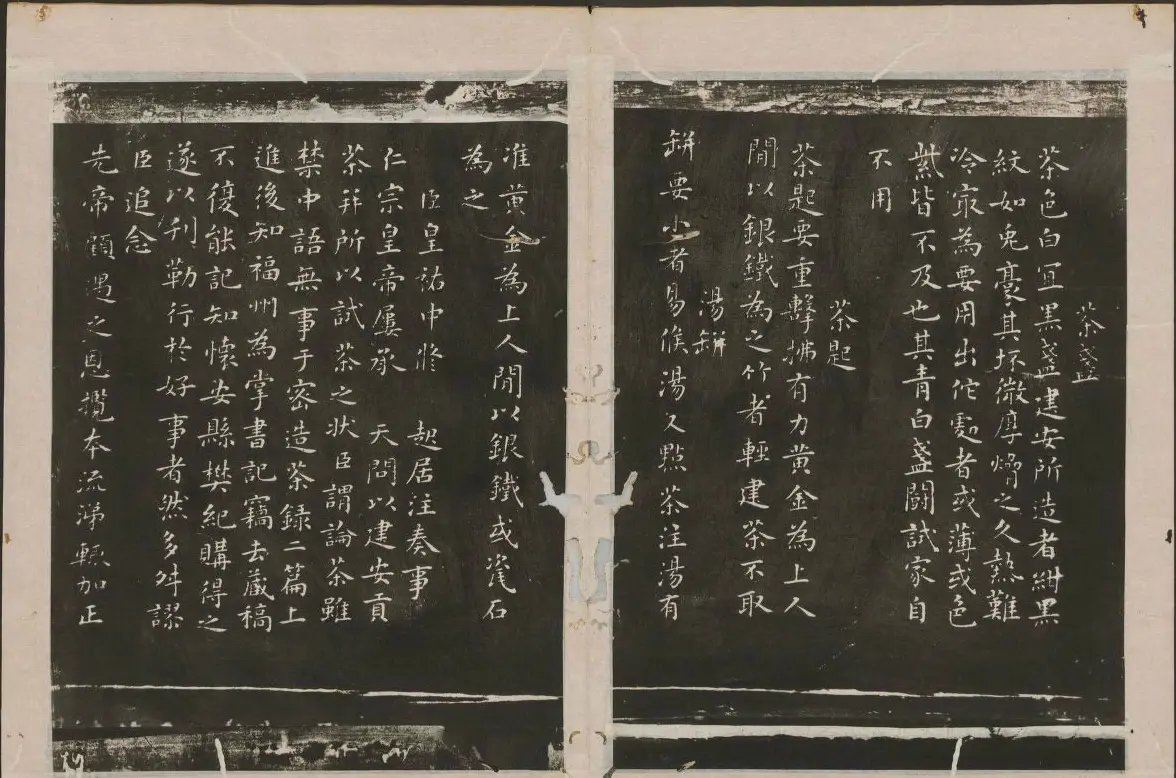 茶盞
茶色白冝黑盞建安所造者紺黑
紋如兔豪其坯微厚熁之久熱難
冷冣為要用出佗處者或薄或色
紫皆不及也其青白盞鬭試家自
不用
茶匙
茶匙要重擊拂有力黄金為上人
閒以銀鐵為之竹者輕建茶不取
湯缾
缾要小者易候湯又點茶注湯有
准黄金為上人閒以銀鐵或瓷石
為之
臣皇祐中脩 起居注奏事
仁宗皇帝屢承 天問以建安貢
茶并所以試茶之狀臣謂論茶雖
禁中語無事于密造茶録二篇上
進後知福州為掌書記竊去藏稿
不復能記知懷安縣樊紀購得之
遂以刊勒行於好事者然多舛謬
臣追念
先帝顧遇之恩攬本流涕輒加正